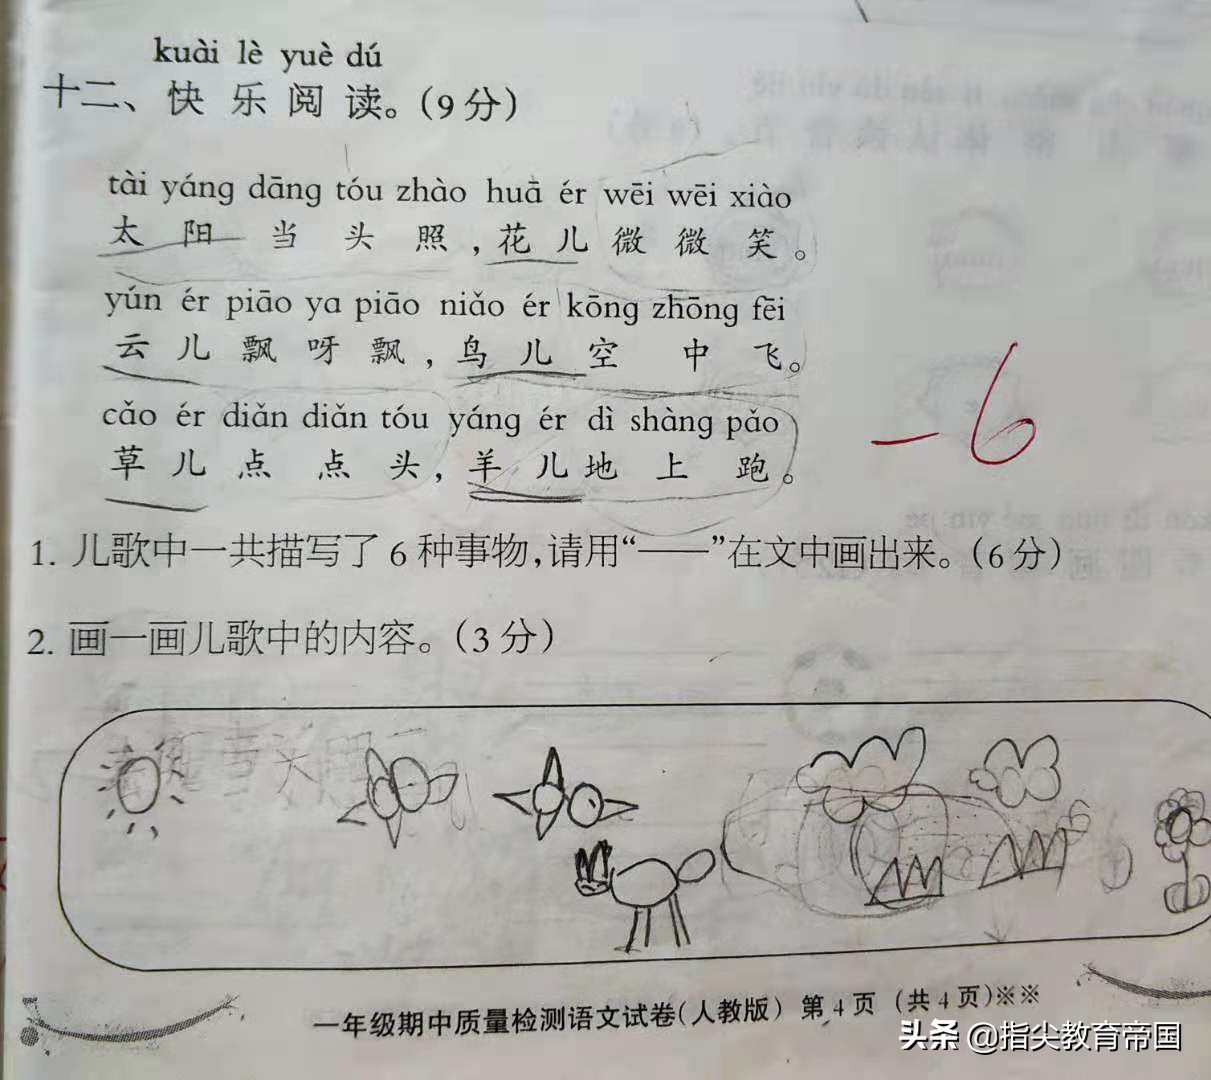 kuài lè yuè dú
十二、快乐阅读。(9分)
tài yáng dāng tóu zhào huā ér wēi wēi xiào
太阳当头照,花儿微微笑。
yún ér piāo ya piāo niǎo ér kōng zhōng fēi
云儿飘呀飘,鸟儿空中飞。
cǎo ér diǎn diǎn tóu yáng ér dì shàng pǎo
草儿点点头,羊儿地上跑。
-6
1. 儿歌中一共描写了6种事物,请用“——”在文中画出来。(6分)
2. 画一画儿歌中的内容。(3分)
一年级期中质量检测语文试卷(人教版) 第4页 (共4页)※※
头条 @指尖教育帝国